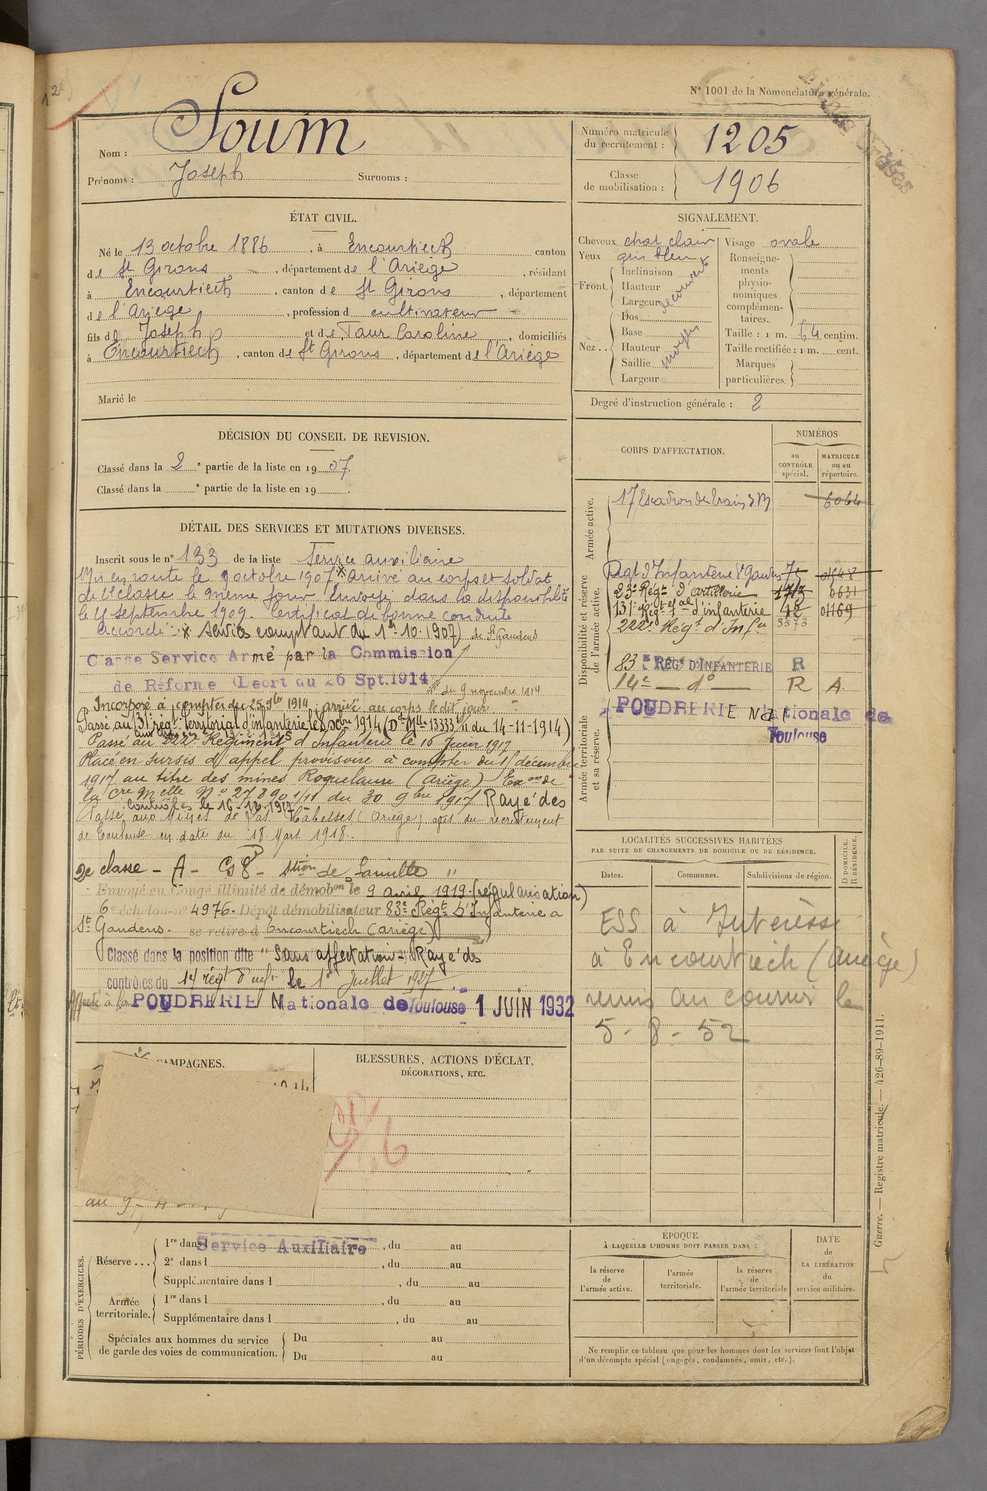 N° 1001 de la Nomenclature générale.
Nom : Soum
Prénoms : Joseph Surnoms :
Numéro matricule du recrutement : 1205
Classe de mobilisation : 1906
ÉTAT CIVIL.
Né le 13 octobre 1886, à Encourtiech canton
de St Girons, département de l'Ariège, résidant
à Encourtiech, canton de St Girons, département
de l'Ariège, profession de cultivateur
fils de Joseph et de Taur Caroline, domiciliés
à Encourtiech, canton de St Girons, département de l'Ariège
Marié le
SIGNALEMENT.
Cheveux chat clair Visage ovale
Yeux gris bleu
Front. Inclinaison
Hauteur
Largeur
découvert
Nez .. Dos
Base
Hauteur
Saillie
Largeur
moyen
Renseignements physionomiques complémentaires.
Taille : 1 m. 64 centim.
Taille rectifiée : 1 m. cent.
Marques particulières.
Degré d'instruction générale : 2
DÉCISION DU CONSEIL DE REVISION.
Classé dans la 2e partie de la liste en 1907.
Classé dans la e partie de la liste en 19 .
DÉTAIL DES SERVICES ET MUTATIONS DIVERSES.
Inscrit sous le n° 133 de la liste Service auxiliaire
Mis en route le 9 octobre 1907 * arrivé au corps et soldat
de 2e classe le même jour Envoyé dans la disponibilité
le septembre 1909. Certificat de bonne conduite
accordé. * service comptant du 1er 10. 1907) de St Gaudens
Classé Service Armé par la Commission
de Réforme du 26 Spt. 1914
du 9 novembre 1914
Incorporé à compter du 1914, arrivé au corps le dit jour.
Passé au 131 régt territorial d'infanterie le 1914 (D. Mlle 13333 1/11 du 14-11-1914)
Passé au 222e Régiment d'Infanterie le 16 Juin 1917
Placé en sursis d'appel provisoire à compter du 1 décembre
1917 au titre des mines Roquelaure (Ariège) Exon de
la Cre Melle N° 27890 1/11 du 30 9bre 1917 Rayé des
contrôles le 16-12-1917
Passé aux Mines de (Ariège) avis du recrutement
de Toulouse en date du 18 Mars 1918.
2e classe - A -
Envoyé en congé illimité de démobon le 9 avril 1919. (régularisation)
6e échelon n° 4976. Dépôt démobilisateur 83e Régt d'Infanterie à
St Gaudens. se retire à Encourtiech (Ariège)
Classé dans la position dite "Sans affectation" Rayé des
contrôles du 14 régt d'infie le 1er Juillet 1927
Affecté à la POUDRERIE Nationale de Toulouse 1 JUIN 1932
CORPS D'AFFECTATION.
NUMÉROS
au CONTRÔLE spécial.
MATRICULE ou au répertoire.
Armée active.
17 Escadron du train 6064
Disponibilité et réserve de l'armée active.
Régt d'Infanterie St Gaudens
23e Régt d'artillerie 1713 6631
131e Régt d'infanterie 48 01169
222e Régt d'Infie 8373
83e RÉGt D'INFANTERIE R
14e — d° — R A.
Armée territoriale et sa réserve.
POUDRERIE Nationale de
Toulouse
LOCALITÉS SUCCESSIVES HABITÉES
PAR SUITE DE CHANGEMENTS DE DOMICILE OU DE RÉSIDENCE.
Dates. Communes. Subdivisions de région.
D DOMICILE. R RÉSIDENCE.
ESS à Intéressé
à Encourtiech (Ariège)
remis au courrier le
5 - 8 - 52
CAMPAGNES.
BLESSURES, ACTIONS D'ÉCLAT,
DÉCORATIONS, ETC.
PÉRIODES D'EXERCICES.
Réserve ... 1re dans l Service Auxiliaire, du au
2e dans l , du au
Supplémentaire dans l , du au
Armée territoriale. 1re dans l , du au
Supplémentaire dans l , du au
Spéciales aux hommes du service de garde des voies de communication. Du au
Du au
ÉPOQUE
À LAQUELLE L'HOMME DOIT PASSER DANS :
la réserve de l'armée active.
l'armée territoriale.
la réserve de l'armée territoriale
DATE de LA LIBÉRATION du service militaire.
Ne remplir ce tableau que pour les hommes dont les services font l'objet
d'un décompte spécial (engagés, condamnés, omis, etc.).
Guerre. — Registre matricule. — 420-89-1911.